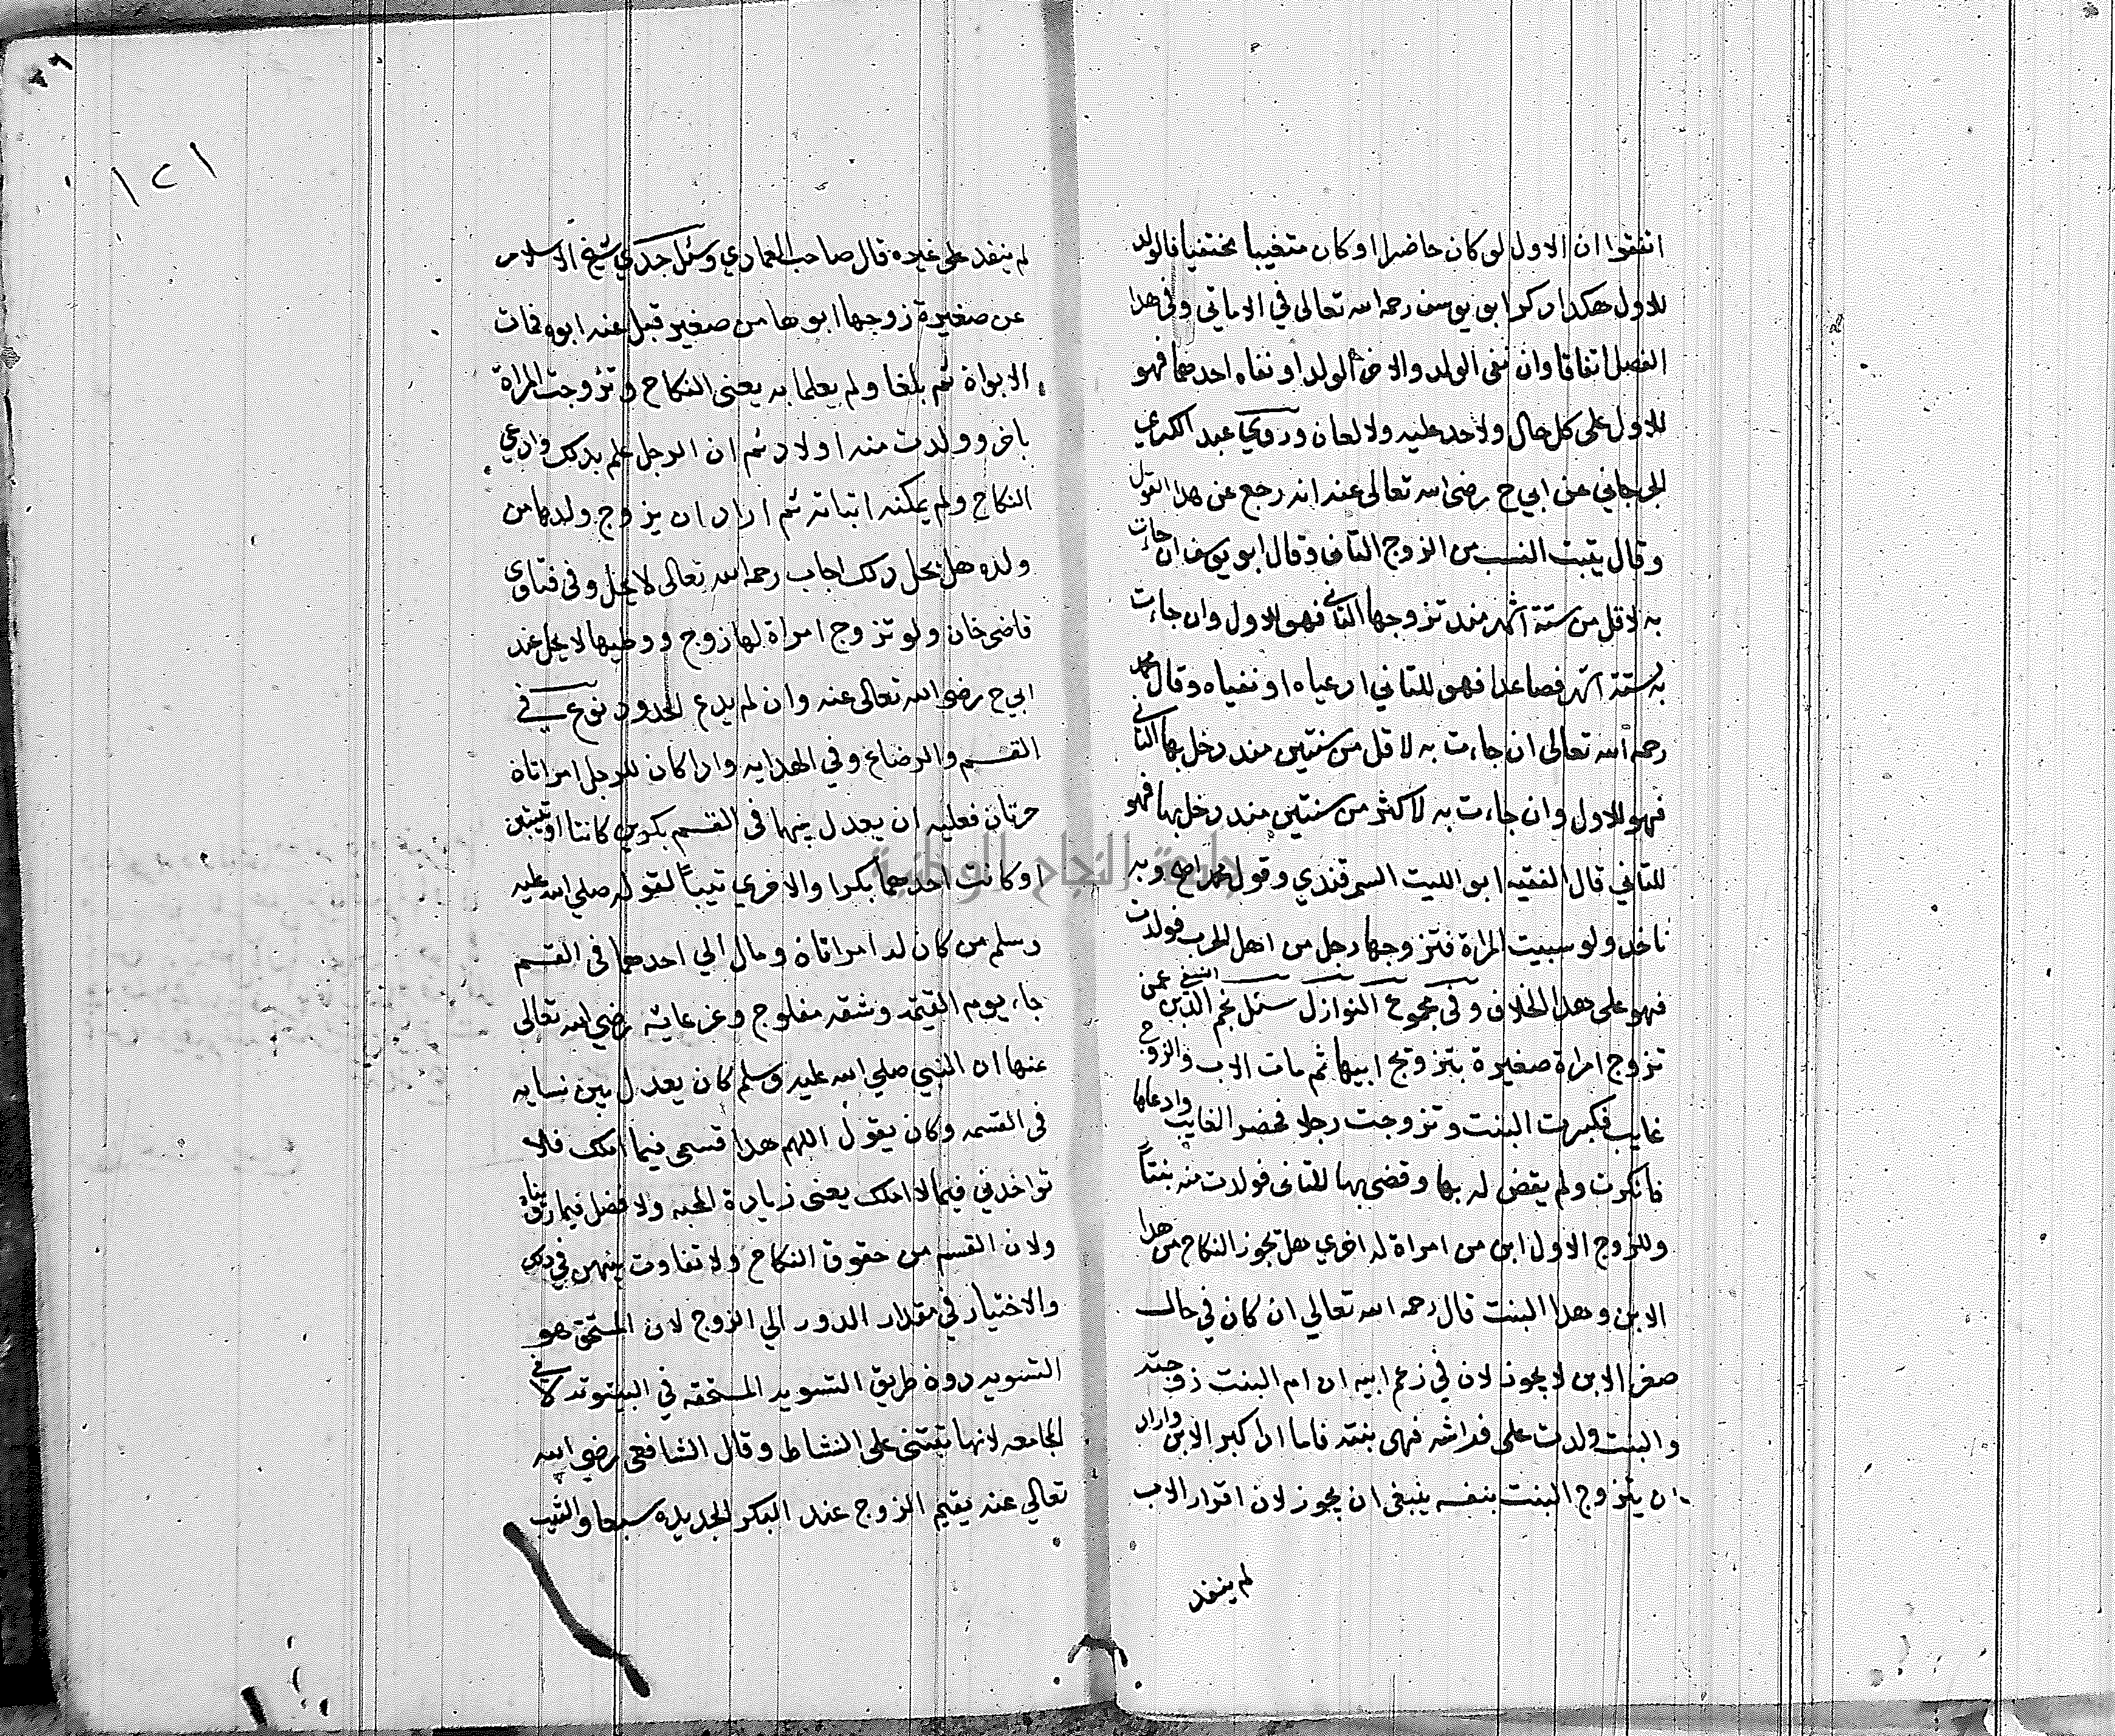 اتفقوا ان الاول لو كان حاضرا او كان متغيبا مختفيا فالولد
للاول هكدا دكر ابو يوسف رحمه الله تعالى في الامالي وفي هدا
الفصل اتفاقا وان نفى الولد والاخر الولد او نفاه احدهما فهو
للاول على كل حال ولا حد عليه ولا لعان وروي عبد الكريم
الجرجاني عن ابي ح رضى الله تعالى عنه انه رجع عن هدا القول
وقال يتبت النسب من الزوج التانى وقال ابو يوسف ان جاءت
به لاقل من ستة اشهر مند تزوجها التانى فهو للاول وان جاءت
به لستة اشهر فصاعدا فهو للتاني ادعياه او نفياه وقال محمد
رحمه الله تعالى ان جاءت به لاقل من سنتين مند دخل بها التاني
فهو للاول وان جاءت به لاكثر من سنتين مند دخل بها فهو
للتاني قال الفقيه ابو الليت السمرقندي وقول محمد اصح وبه
ناخد ولو سبيت المراة فتزوجها رجل من اهل الحرب فولدت
فهو على هدا الخلاف وفي مجموع النوازل سئل نجم الدين النسفي عمن
تزوج امراة صغيرة بتزويج ابيها ثم مات الاب والزوج
غايب فكبرت البنت وتزوجت رجلا فحضر الغايب وادعاها
فانكرت ولم يقض له بها وقضى بها للتانى فولدت منه بنتاً
وللزوج الاول ابن من امراة له اخرى هل تجوز النكاح من هدا
الابن وهدا البنت قال رحمه الله تعالي ان كان في حال
صغر الابن لا يجوز لان في زعم ابيه ان ام البنت زوجته
والبنت ولدت على فراشه فهى بنته فاما ادا كبر الابن واراد
ان يتزوج البنت بنفسه ينبغى ان يجوز لان اقرار الاب
لم ينفد
١٢١
لم ينفد على غيره قال صاحب العمادي وسئل جدي شيخ الاسلام
عن صغيرة زوجها ابوها من صغير قبل عنه ابوه فمات
الابوان ثم بلغا ولم يعلما به يعنى النكاح وتزوجت المراة
باخر وولدت منه اولاد ثم ان الرجل علم بدلك وادعي
النكاح ولم يمكنه اتباته ثم اراد ان يزوج ولدها من
ولده هل يحل دلك اجاب رحمه الله تعالى لا يحل وفى فتاوى
قاضى خان ولو تزوج امراة لها زوج ووطيها لا يحل عند
ابي ح رضى الله تعالى عنه وان لم يدع الحدود نوع في
القسم والرضاع وفي الهدايه وادا كان للرجل امراتان
حرتان فعليه ان يعدل بينهما فى القسم بكرين كانتا او تيبتين
او كانت احدهما بكرا والاخرى تيباً لقوله صلى الله عليه
وسلم من كان له امراتان ومال الي احدهما فى القسم
جاء يوم القيمه وشقه مفلوج وعن عايشه رضى الله تعالى
عنها ان النبي صلي الله عليه وسلم كان يعدل بين نسايه
فى القسمه وكان يقول اللهم هدا قسمى فيما املك فلا
تواخدني فيما لا املك يعنى زيادة المحبه ولا فصل فيما روينا
ولان القسم من حقوق النكاح ولا تفاوت بينهن في دلك
والاختيار في مقدار الدور الي الزوج لان المستحق هو
التسويه دون طريق التسويه المستحقه في البيتوته لا في
المجامعه لانها تبتنى على النشاط وقال الشافعى رضى الله
تعالي عنه يقيم الزوج عند البكر الجديده سبعا والتيب
جامعة النجاح الوطنية